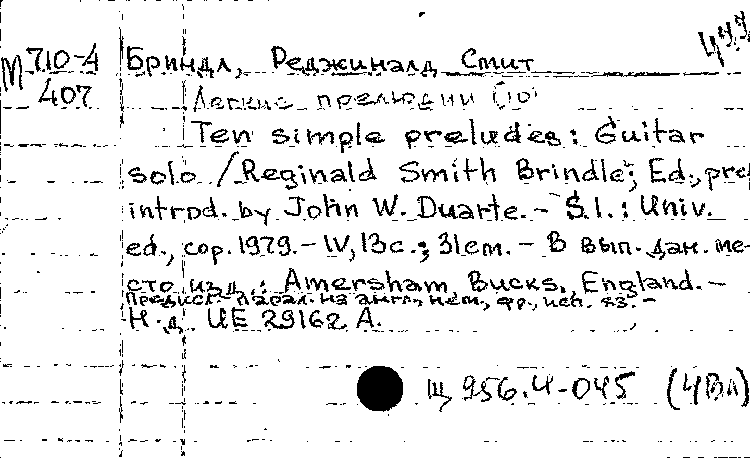 М 710-4 Бриндл, Реджиналд Смит
407 Легкие прелюдии (10)
Ten simple preludes: Guitar
solo / Reginald Smith Brindle; Ed., pref
introd. by John W. Duarte. - S.l.: Univ.
ed., cop. 1979. - IV, 13 с.; 31 em. - В вып. дан. ме-
сто изд.: Amersham, Bucks, England. -
Предисл. парал. на англ., нем., фр., исп. яз. -
Н.д. UE 29162 A.
Щ 956.4-045 (4Вл)